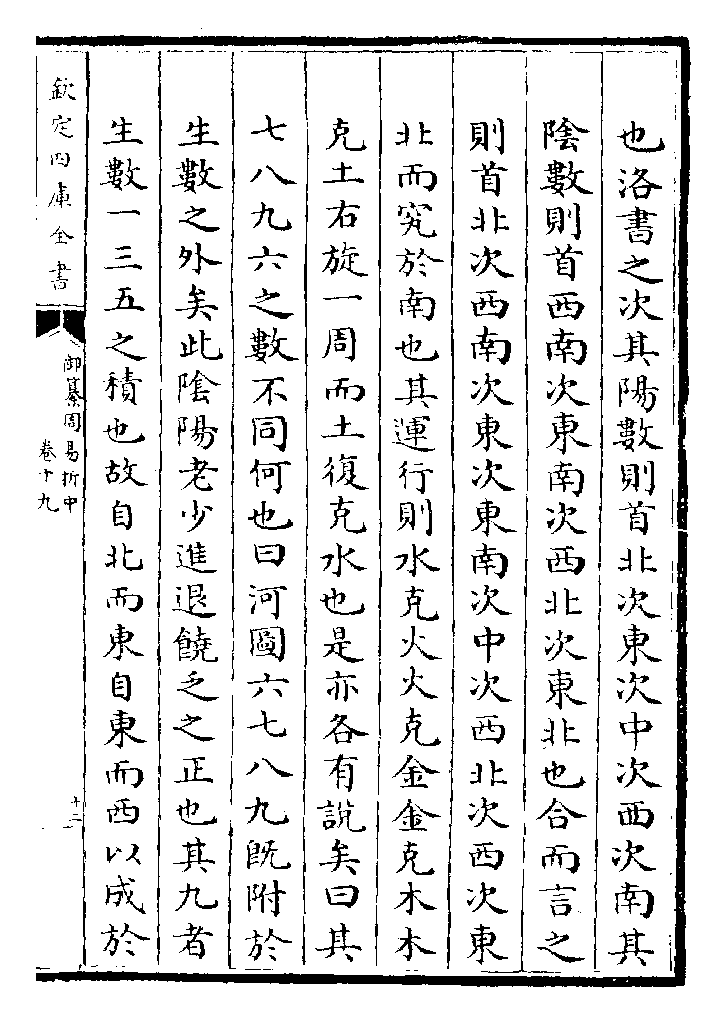 也洛書之次其陽數則首北次東次中次西次南其
陰數則首西南次東南次西北次東北也合而言之
則首北次西南次東次東南次中次西北次西次東
北而究於南也其運行則水克火火克金金克木木
克土右旋一周而土復克水也是亦各有說矣曰其
七八九六之數不同何也曰河圖六七八九既附於
生數之外矣此陰陽老少進退饒乏之正也其九者
生數一三五之積也故自北而東自東而西以成於
欽定四庫全書
御纂周易折中
卷十九
十二